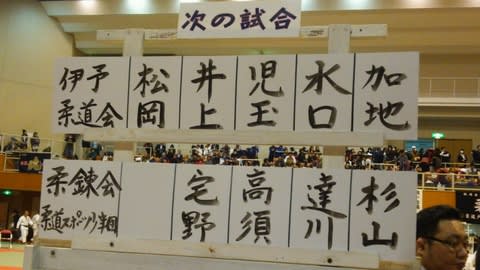 次の試合
伊予柔道会
松岡
井上
児玉
水口
加地
柔錬会
柔道スポーツ少年団
宅野
高須
達川
杉山